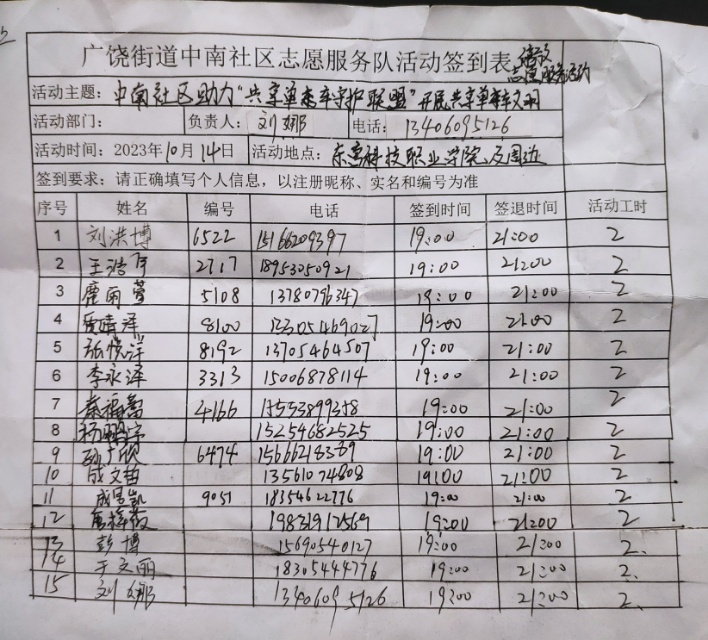 广饶街道中南社区志愿服务队活动签到表
志愿服务活动
活动主题：中南社区助力"共享单车守护联盟"开展共享单车文明
活动部门： 负责人：刘娜 电话：13406095126
活动时间：2023年10月14日 活动地点：东营科技职业学院及周边
签到要求：请正确填写个人信息，以注册昵称、实名和编号为准
序号 姓名 编号 电话 签到时间 签退时间 活动工时
1 刘洪博 6522 15166209397 19:00 21:00 2
2 王浩 2717 18953050921 19:00 21:00 2
3 鹿雨 5108 13780796347 19:00 21:00 2
4 贾晴泽 8100 13305469027 19:00 21:00 2
5 张悦洋 8192 13705464507 19:00 21:00 2
6 李永泽 3313 15006878114 19:00 21:00 2
7 4166 19:00 21:00 2
8 杨鹏宇 13254682525 19:00 21:00 2
9 6474 19:00 21:00 2
10 成文苗 13561074808 19:00 21:00 2
11 成昱凯 9051 18354622776 19:00 21:00 2
12 19831912569 19:00 21:00 2
13 彭博 15690540127 19:00 21:00 2.
14 于文丽 18305444776 19:00 21:00 2.
15 刘娜 13406095126 19:00 21:00 2.